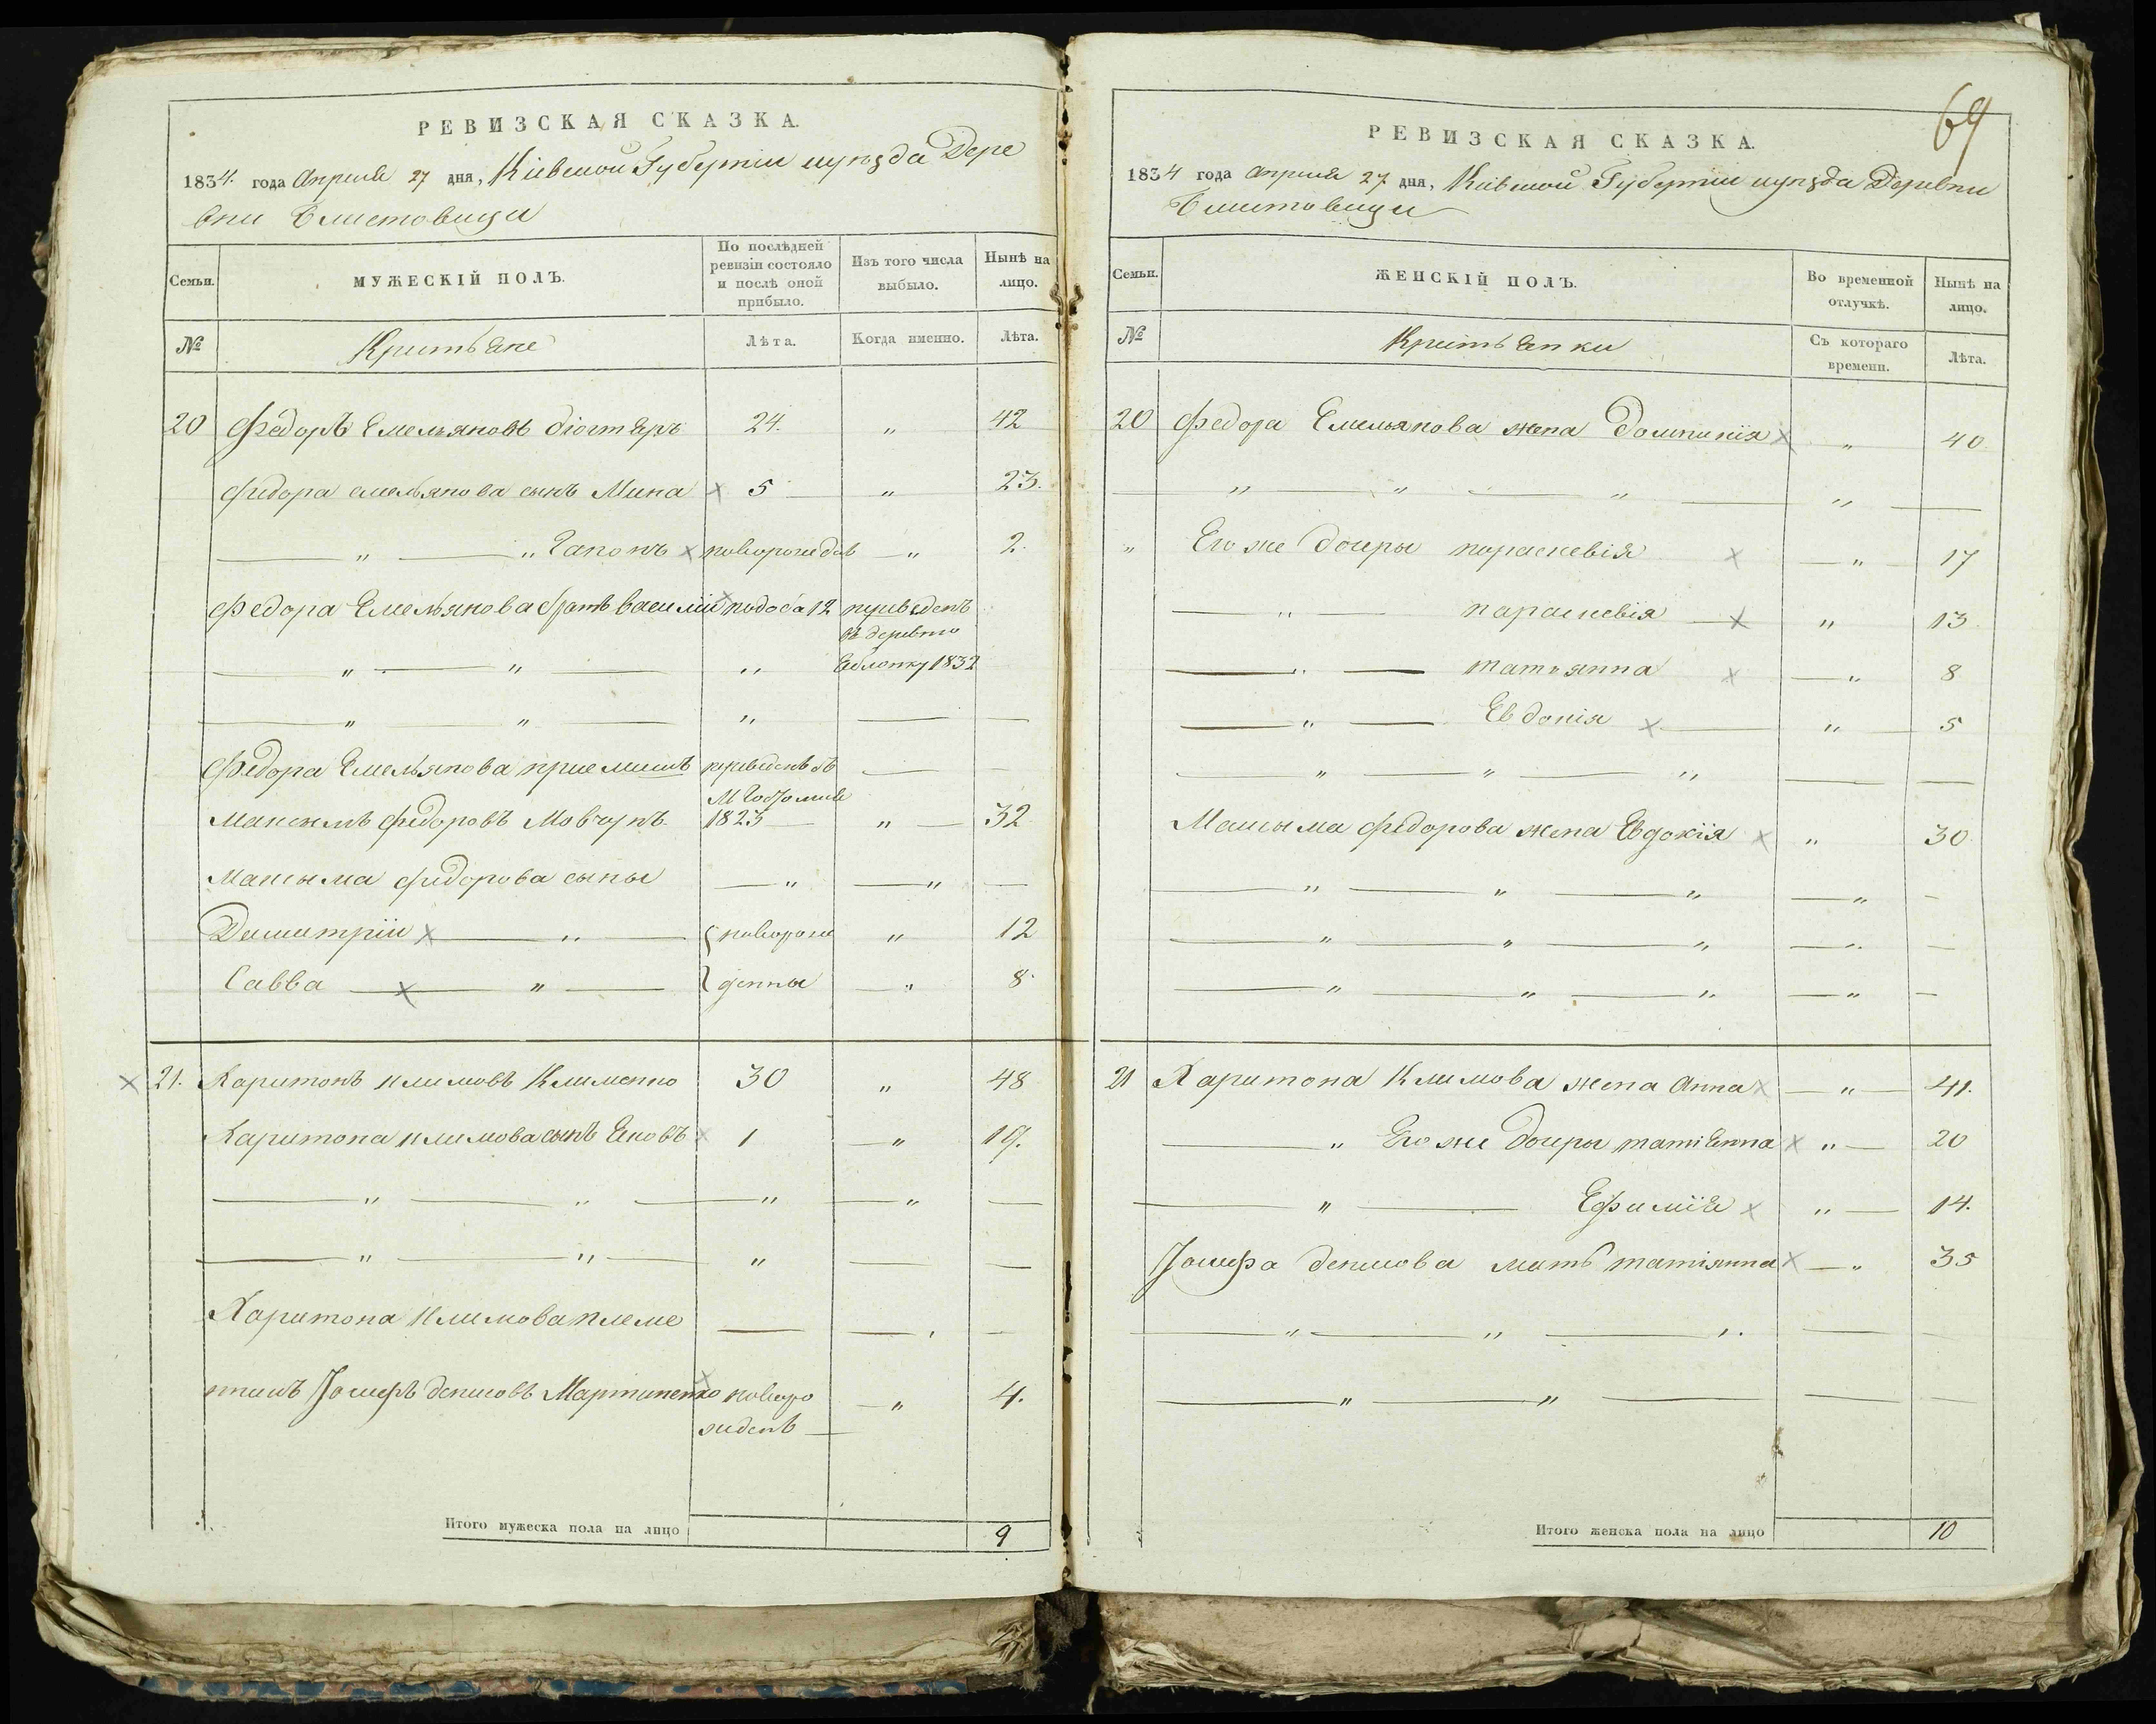 РЕВИЗСКАЯ СКАЗКА.
1834. года Апреля 27 дня, Кіевской Губерніи уезда Дере
вни
Семьи.
МУЖЕСКІЙ ПОЛЪ.
По послѣдней ревизіи состояло и послѣ оной прибыло.
Изъ того числа выбыло.
Нынѣ на лицо.
№
Лѣта.
Когда именно.
Лѣта.
20 Федоръ Емельяновъ 24. „ 42
Федора емельянова сынъ Мина х 5 „ 23.
„ „ Гапонъ х новорожде „ 2.
Федора Емельянова братъ василій 12
въ деревню
„ „ „ 1832
„ „ „
Федора Емельянова приемышъ
Максимъ Федоровъ 1823 „ 32
Максыма федорова сыны „ „
Димитрій х „ новорож „ 12
Савва х „ денны „ 8
х 21. Харитонъ климовъ Клименко 30 „ 48
Харитона климова сынъ Яковъ х 1 „ 19.
„ „ „ „
„ „ „
Харитона климова племе
нникъ Іосифъ денисовъ Мартиненко х новоро „ 4.
жденъ
Итого мужеска пола на лицо 9
69
РЕВИЗСКАЯ СКАЗКА.
1834 года апреля 27 дня, Кіевской Губерніи уезда Деревни
Семьи.
ЖЕНСКІЙ ПОЛЪ.
Во временной отлучкѣ.
Нынѣ на лицо.
№
Съ котораго времени.
Лѣта.
20 Федора Емельянова жена Домникія х „ 40
„ „ „ „
„ Его же дочеры параскевія х „ 17
„ параскевія х „ 13
„ татиянна х „ 8
„ Евдокія х „ 5
„ „ „
Максыма федорова жена Евдокія х „ 30
„ „ „ „
„ „ „ „
„ „ „ „
21 Харитона Климова жена Анна х „ 41.
„ Его же дочеры татіянна х „ 20
„ Ефимія х „ 14.
Іосифа денисова мать татіянна х „ 35
„ „ „
„ „
Итого женска пола на лицо 10